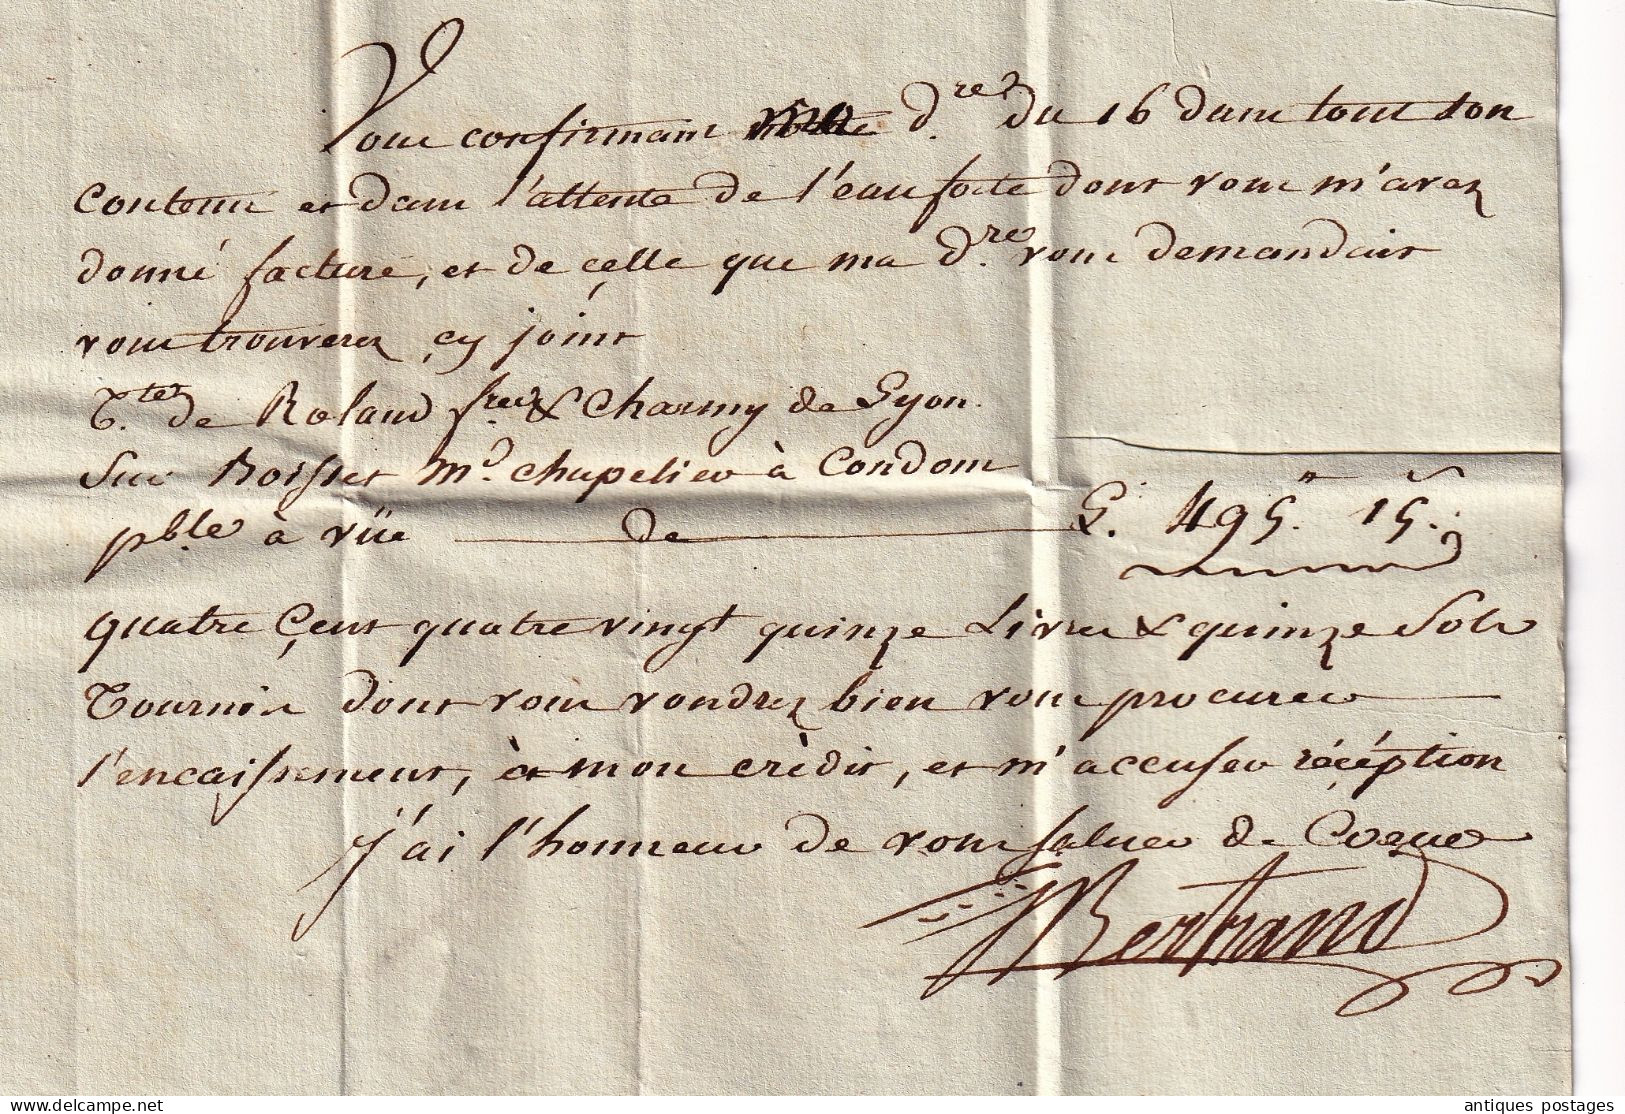 Vous confirmant ma d.re du 16 dans tout son
contenu et dans l'attente de l'eau forte dont vous m'avez
donné facture, et de çelle que ma d.re vous demandait
vous trouverez çy joint
T.te de Roland fres & Charmy de Lyon
Sur Boisset md. chapelier à Condom
pble à vüe de L. 495." 15.s
quatre çent quatre vingt quinze Livres & quinze Sols
Tournois dont vous voudrez bien vous procurer
l'encaissement, à mon crèdit, et m'accuser récéption
J'ai l'honneur de vous saluer de Coeur
Bertrand
antiques postages